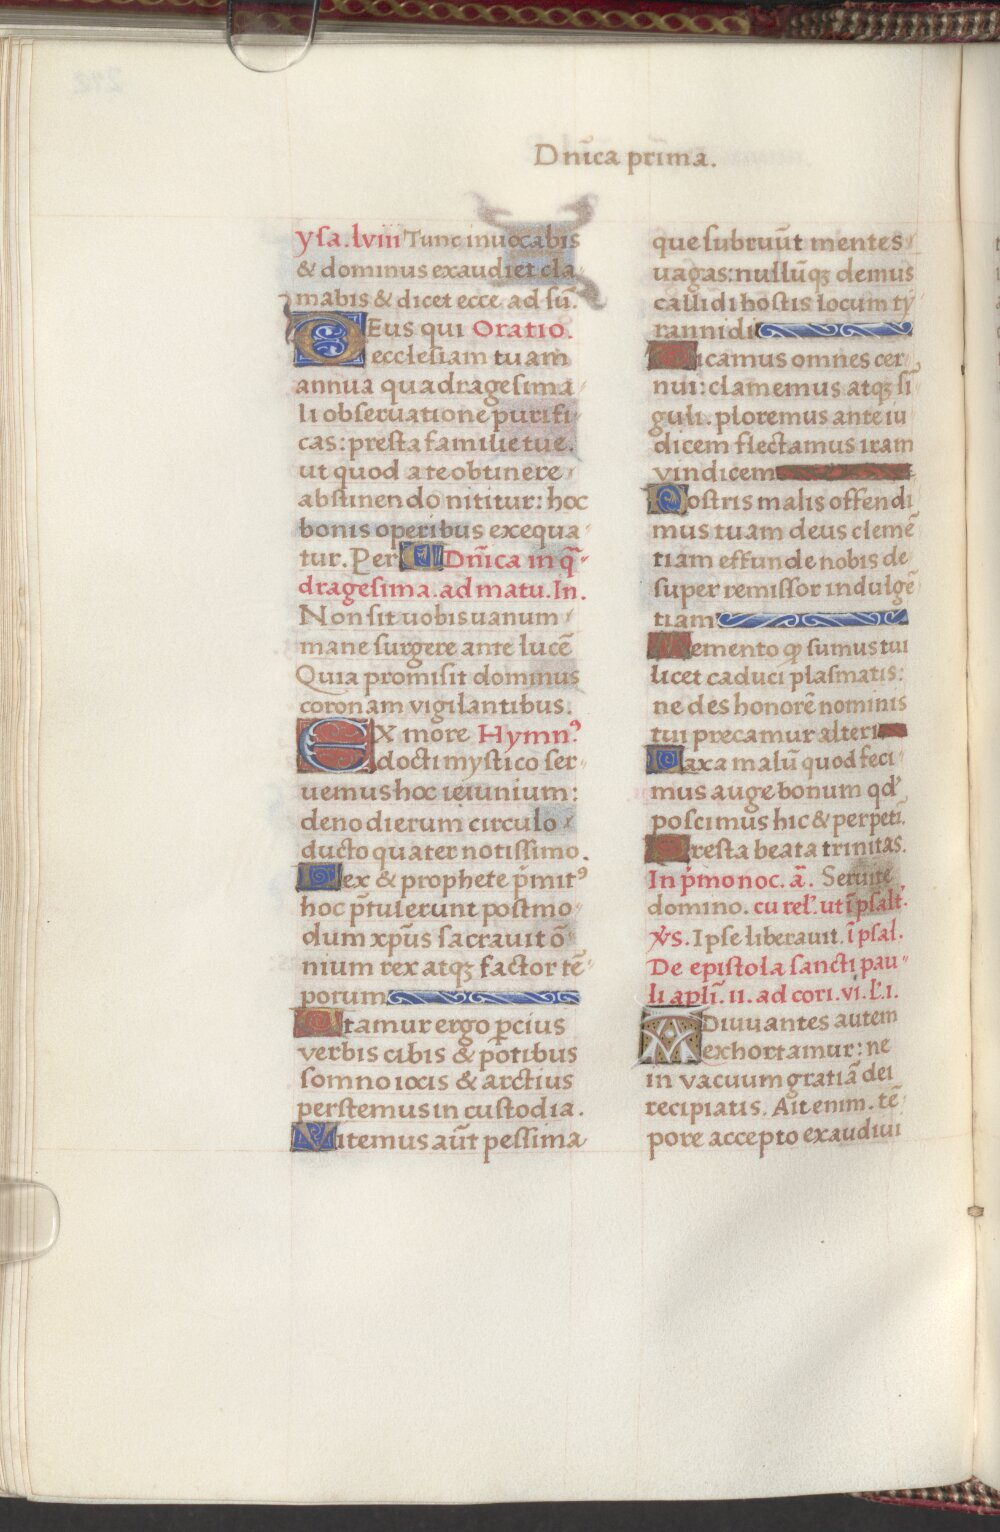 Dnīca prīma.
ysa. lviii Tunc invocabis
& dominus exaudiet cla
mabis & dicet ecce ad sū.
DEus qui Oratio.
ecclesiam tuam
annua quadragesima
li observatione purifi
cas: presta familie tue.
ut quod a te obtinere
abstinendo nititur: hoc
bonis operibus exequa
tur. Per Dnīca in q̄
dragesima. ad matu. In.
Non sit vobis vanum
mane surgere ante lucē
Quia promisit dominus
coronam vigilantibus.
EX more Hymnꝰ
docti mystico ser
vemus hoc ieiunium:
deno dierum circulo
ducto quater notissimo.
Lex & prophete p̄mitꝰ
hoc p̄tulerunt postmo
dum xp̄us sacravit ō
nium rex atqꝫ factor tē
porum
Utamur ergo ꝑcius
verbis cibis & potibus
somno iocis & arctius
perstemus in custodia.
Vitemus aūt pessima
que subruūt mentes
vagas: nullūqꝫ demus
callidi hostis locum ty
rannidi
Dicamus omnes cer
nui: clamemus atqꝫ sī
guli. ploremus ante iu
dicem flectamus iram
vindicem
Nostris malis offendi
mus tuam deus clemē
tiam effunde nobis de
super remissor indulgē
tiam
Memento ꝙ sumus tui
licet caduci plasmatis:
ne des honorē nominis
tui precamur alteri
Laxa malū quod feci
mus auge bonum qđ
poscimus hic & perpetī.
Presta beata trinitas.
In p̄mo noc. ā. Servite
domino. cu rel'. ut ī psalt'.
v̄s. Ipse liberavit. ī psal.
De epistola sancti pau
li aplī. ii. ad cori. vi. l'. i.
ADiuvantes autem
exhortamur: ne
in vacuum gratiā dei
recipiatis. Ait enim. tē
pore accepto exaudivi